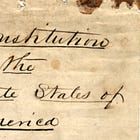 nstitution
the
te States of
merica